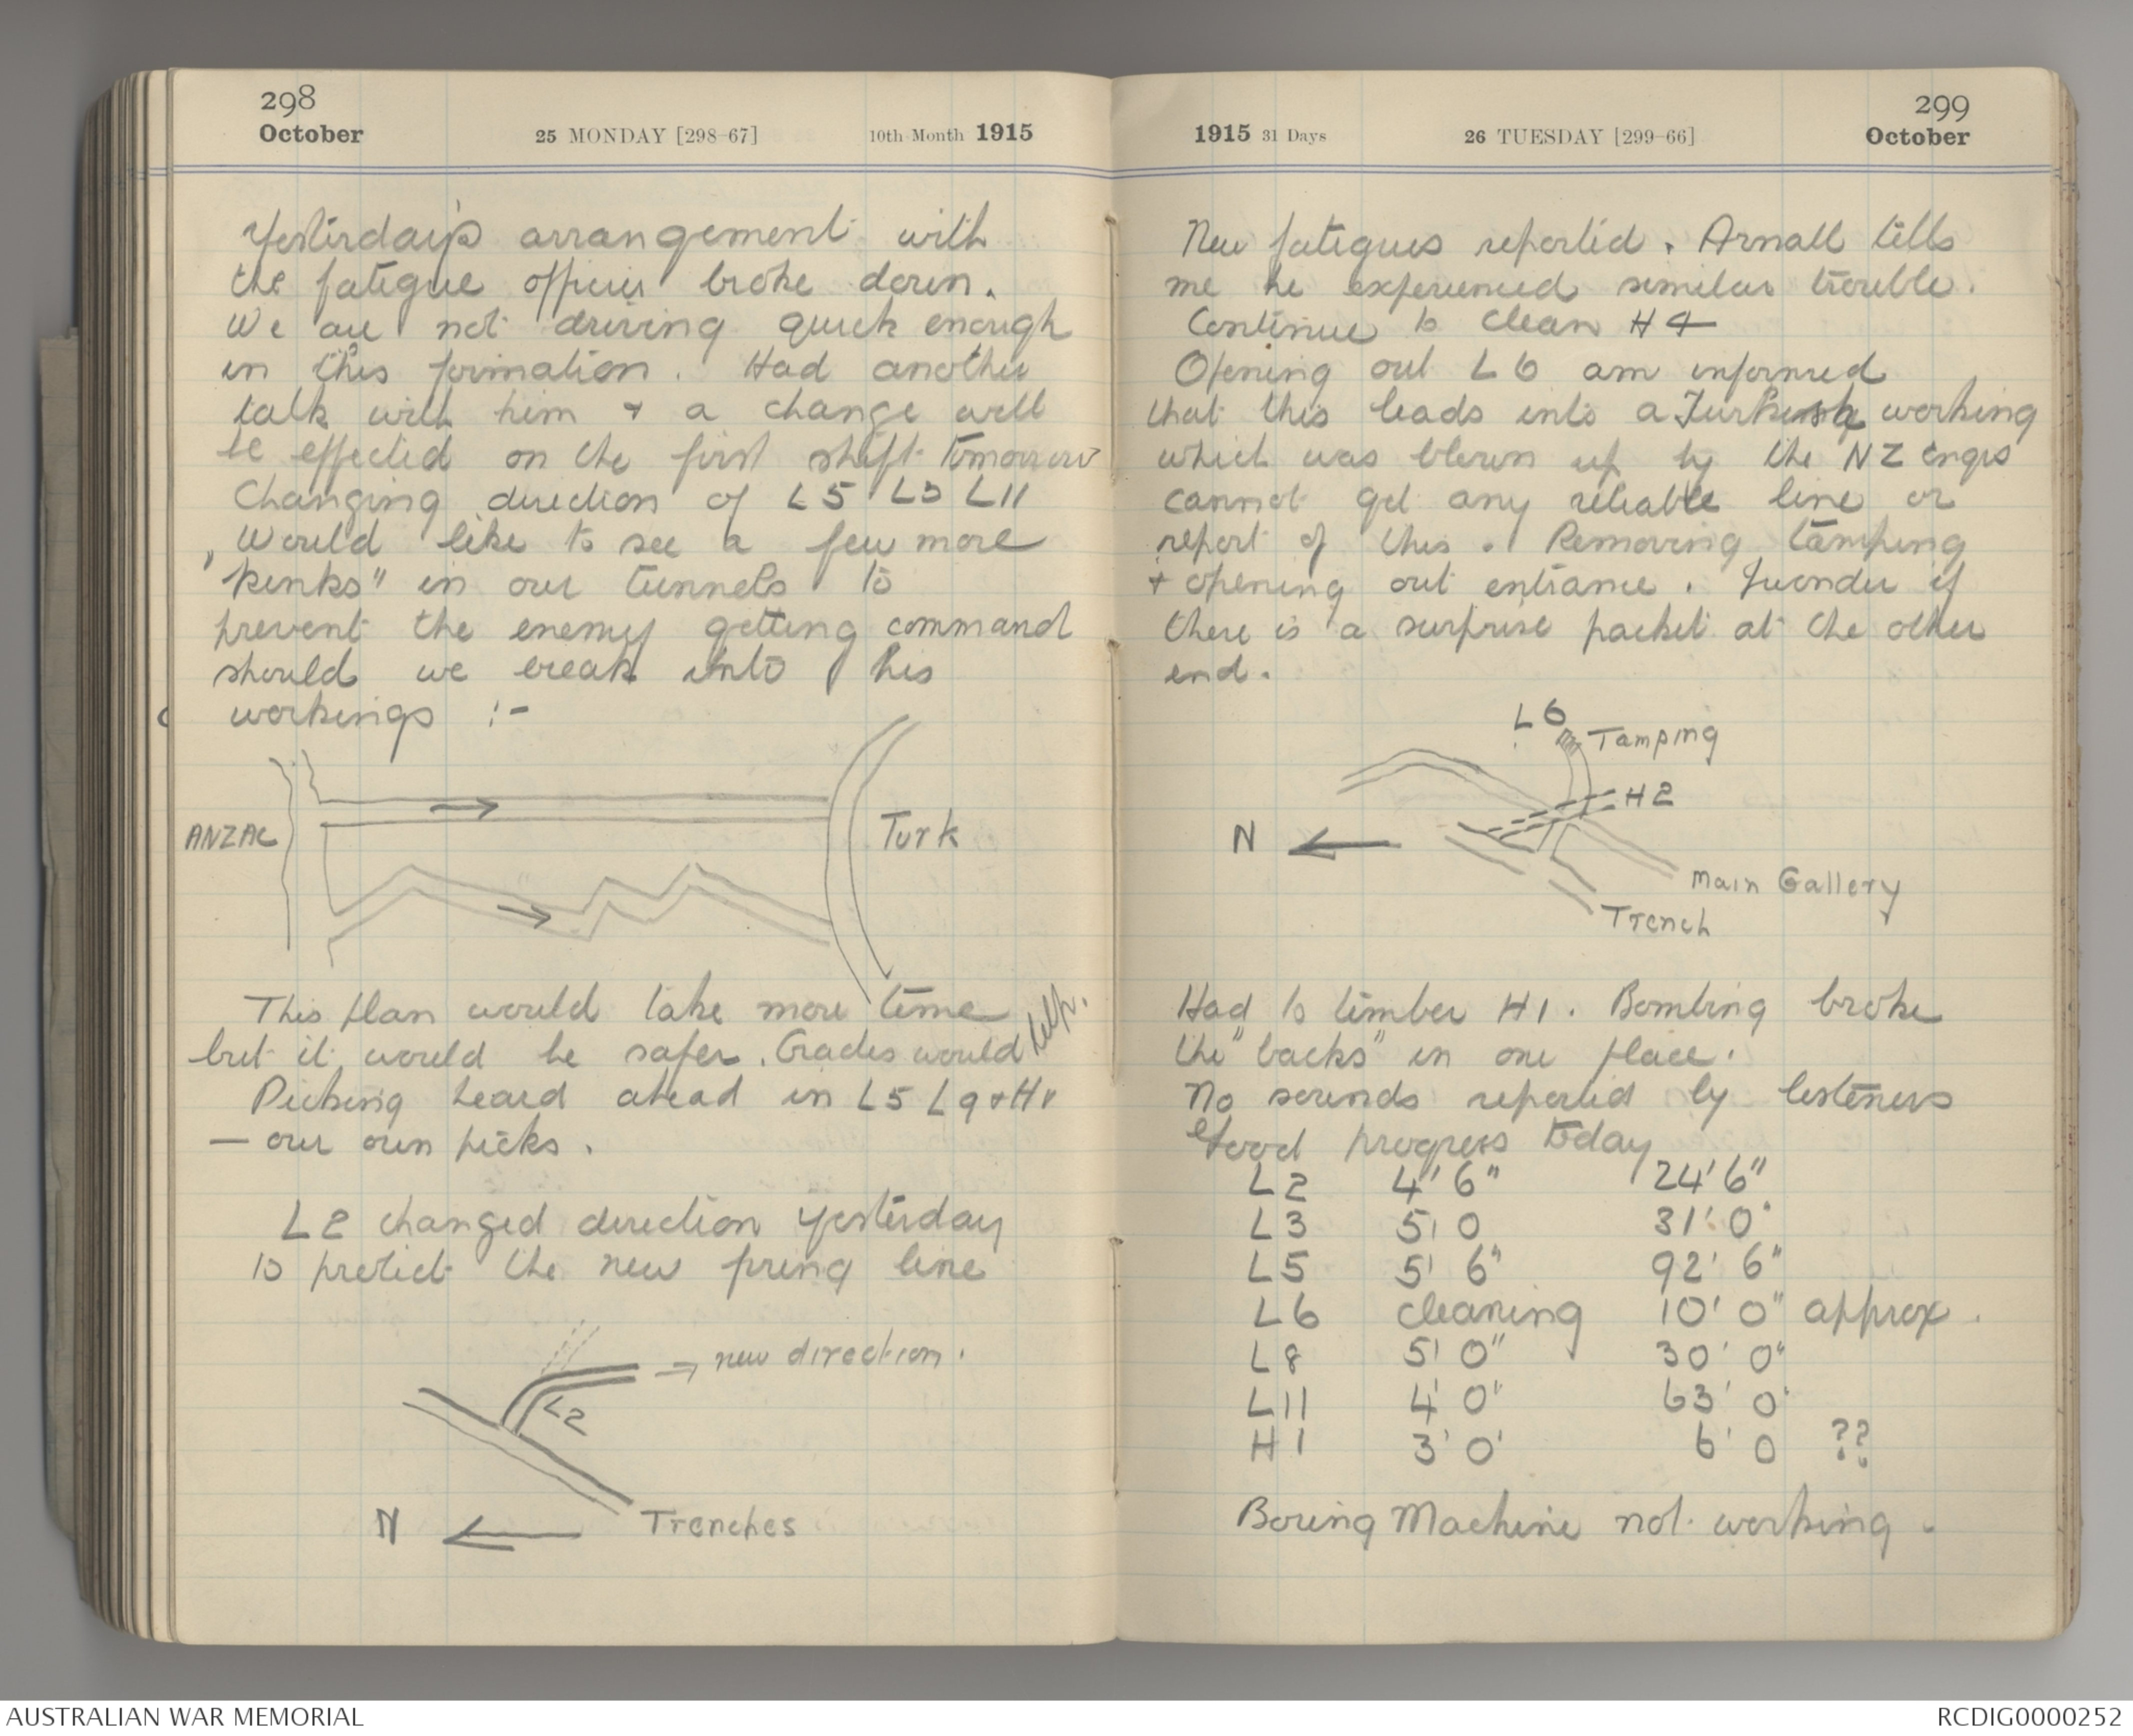 298
October 25 MONDAY [298-67] 10th Month 1915
Yesterday's arrangement with
the fatigue officer broke down.
We are not driving quick enough
in this formation. Had another
talk with him + a change will
be effected on the first shift tomorrow
Changing direction of L5 L3 L11
Would like to see a few more
"kinks" in our tunnels to
prevent the enemy getting command
should we break into his
workings :-
ANZAC
Turk
This plan would take more time
but it would be safer. Grades would help.
Picking heard ahead in L5 L9 + H1
— our own picks.
L2 changed direction yesterday
to protect the new firing line
new direction.
L2
N
Trenches
299
1915 31 Days 26 TUESDAY [299-66] October
New fatigues reported. Arnall tells
me he experienced similar trouble.
Continue to clean H4
Opening out L6 am informed
that this leads into a Turkish working
which was blown up by the NZ Engrs
cannot get any reliable line or
report of this. Removing tamping
+ opening out entrance. I wonder if
there is a surprise packet at the other
end.
L6
Tamping
H2
N
Main Gallery
Trench
Had to timber H1. Bombing broke
the "backs" in one place.
No sounds reported by listeners
Good progress today
L2 4' 6" 24' 6"
L3 5' 0 31' 0"
L5 5' 6" 92' 6"
L6 cleaning 10' 0" approx.
L8 5' 0" 30' 0"
L11 4' 0" 63' 0"
H1 3' 0' 6' 0 ??
Boring Machine not working.
AUSTRALIAN WAR MEMORIAL
RCDIG0000252